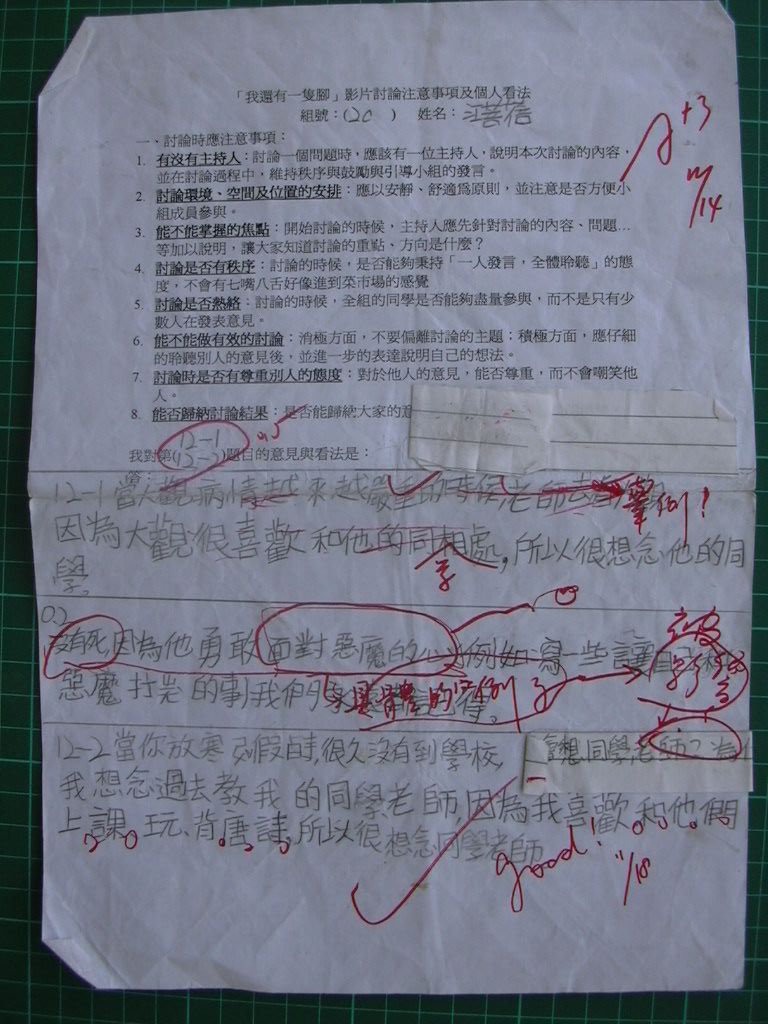 「我還有一隻腳」影片討論注意事項及個人看法
組號：(20 ) 姓名：
+3
11/14
一、討論時應注意事項：
1. 有沒有主持人：討論一個問題時，應該有一位主持人，說明本次討論的內容，
並在討論過程中，維持秩序與鼓勵與引導小組的發言。
2. 討論環境、空間及位置的安排：應以安靜、舒適為原則，並注意是否方便小
組成員參與。
3. 能不能掌握的焦點：開始討論的時候，主持人應先針對討論的內容、問題…
等加以說明，讓大家知道討論的重點、方向是什麼？
4. 討論是否有秩序：討論的時候，是否能夠秉持「一人發言，全體聆聽」的態
度，不會有七嘴八舌好像進到菜市場的感覺
5. 討論是否熱絡：討論的時候，全組的同學是否能夠盡量參與，而不是只有少
數人在發表意見。
6. 能不能做有效的討論：消極方面，不要偏離討論的主題；積極方面，應仔細
的聆聽別人的意見後，並進一步的表達說明自己的想法。
7. 討論時是否有尊重別人的態度：對於他人的意見，能否尊重，而不會嘲笑他
人。
8. 能否歸納討論結果：是否能歸納大家的意
12-1
我對第(12-2)題目的意見與看法是：
答：
12-1當大觀病情越來越嚴重的時候老師去 舉例！
因為大觀很喜歡和他的同相處，所以很想念他的同
學
學。
0.2
沒有死，因為他勇敢面對惡魔的 例如寫一些讓
惡魔打 的事我們 具體的實例
12-2當你放寒 假時，很久沒有到學校，
會想同學老師？為
我想念過去教我的同學老師，因為我喜歡和他們
上課、玩、背唐詩，所以很想念同學老師
good！
11/18